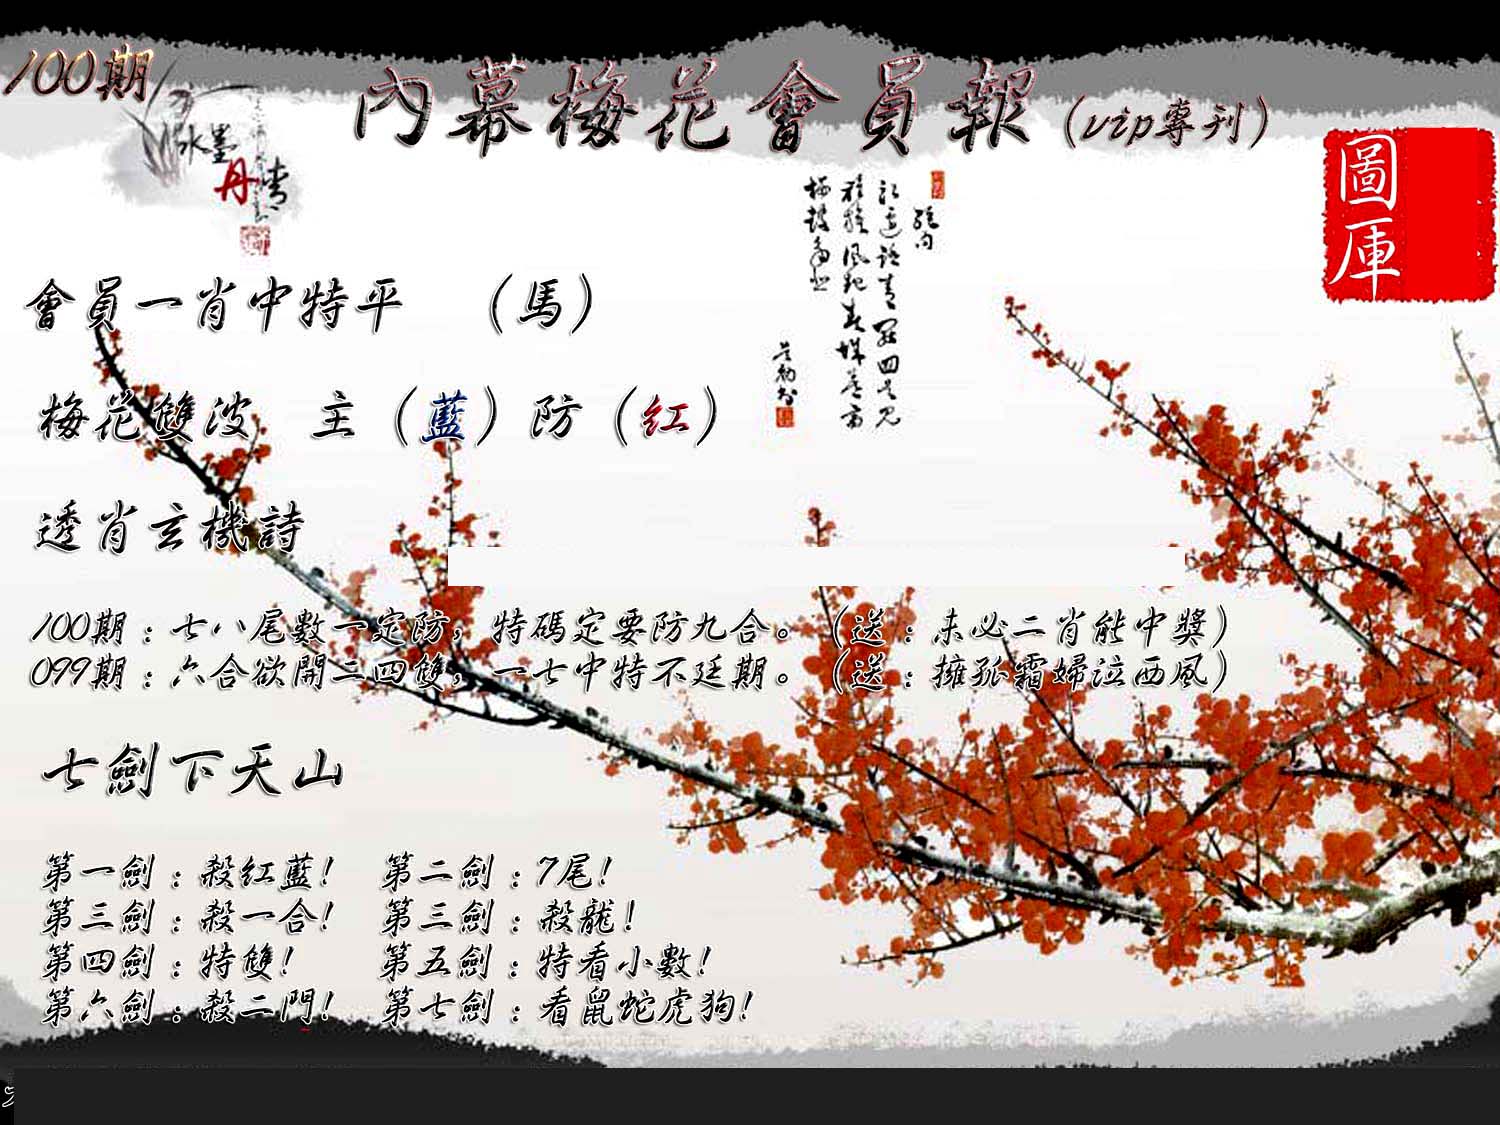 100期
內幕梅花會員報(vip專刊)
水墨
丹青
圖庫
會員一肖中特平 (馬)
梅花雙波 主(藍)防(紅)
透肖玄機詩
100期:七八尾數一定防,特碼定要防九合。(送:未必二肖能中獎)
099期:六合欲開二四雙,一七中特不廷期。(送:擁孤霜婦泣西風)
七劍下天山
第一劍:殺紅藍! 第二劍:7尾!
第三劍:殺一合! 第三劍:殺龍!
第四劍:特雙! 第五劍:特看小數!
第六劍:殺二門! 第七劍:看鼠蛇虎狗!